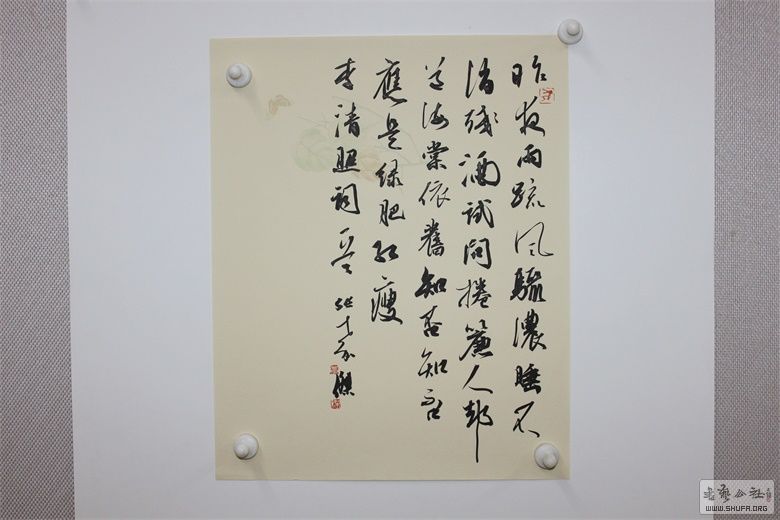 昨夜雨疏风骤濃睡不
消残酒試问捲簾人却
道海棠依舊知否知否
應是绿肥红瘦
李清照词一首
書藝公社
WWW.SHUFA.ORG